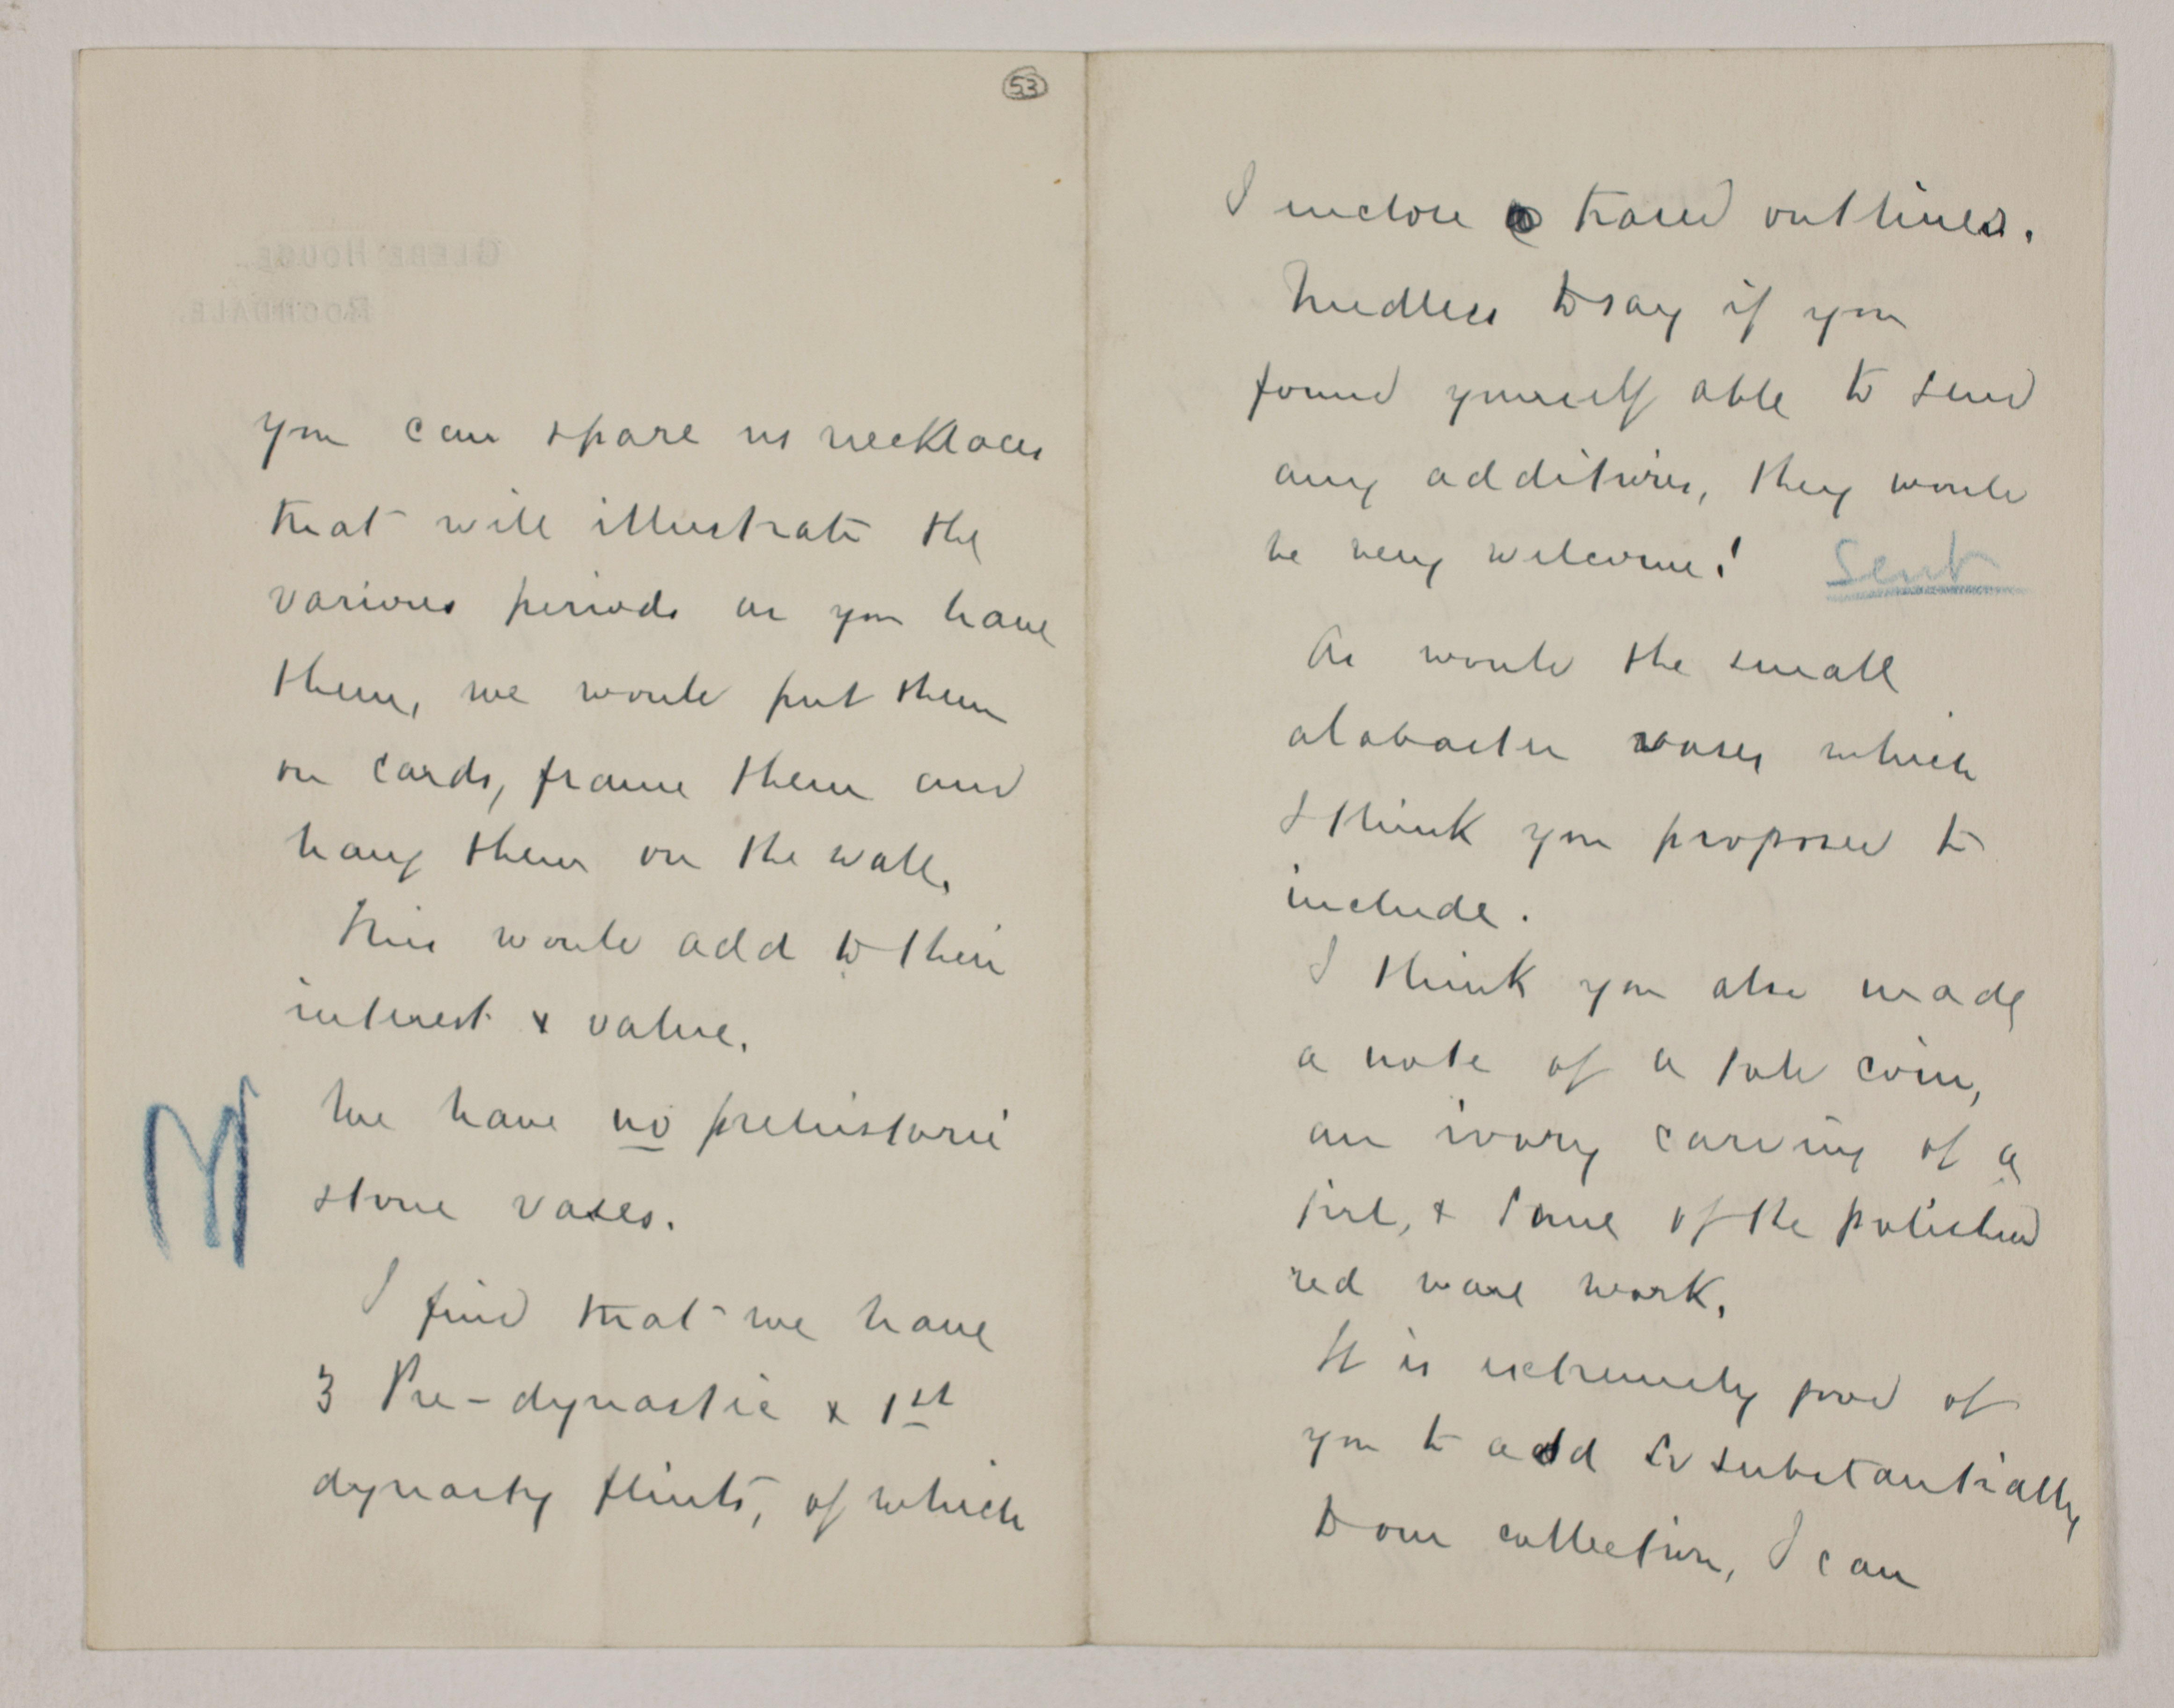 53
GLEBE HOUSE.
ROCHDALE.
you can spare us necklaces
that will illustrate the
various periods as you have
them, we would put them
on cards, frame them and
hang them on the wall.
This would add to their
interest & value.
We have no prehistoric
stone vases.
I find that we have
3 Pre-dynastic & 1st
dynasty flints, of which
I inclose traced outlines.
Needless to say if you
found yourself able to send
any additions, they would
be very welcome!
Sent
As would the small
alabaster vases which
I think you proposed to
include.
I think you also made
a note of a gold coin,
an ivory carving of a
girl, & some of the polished
red ware work.
It is extremely good of
you to add so substantially
to our collection, I can